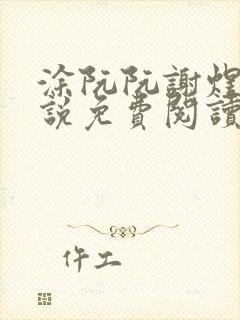 涂阮阮謝煌
說免費閱讀
仵工